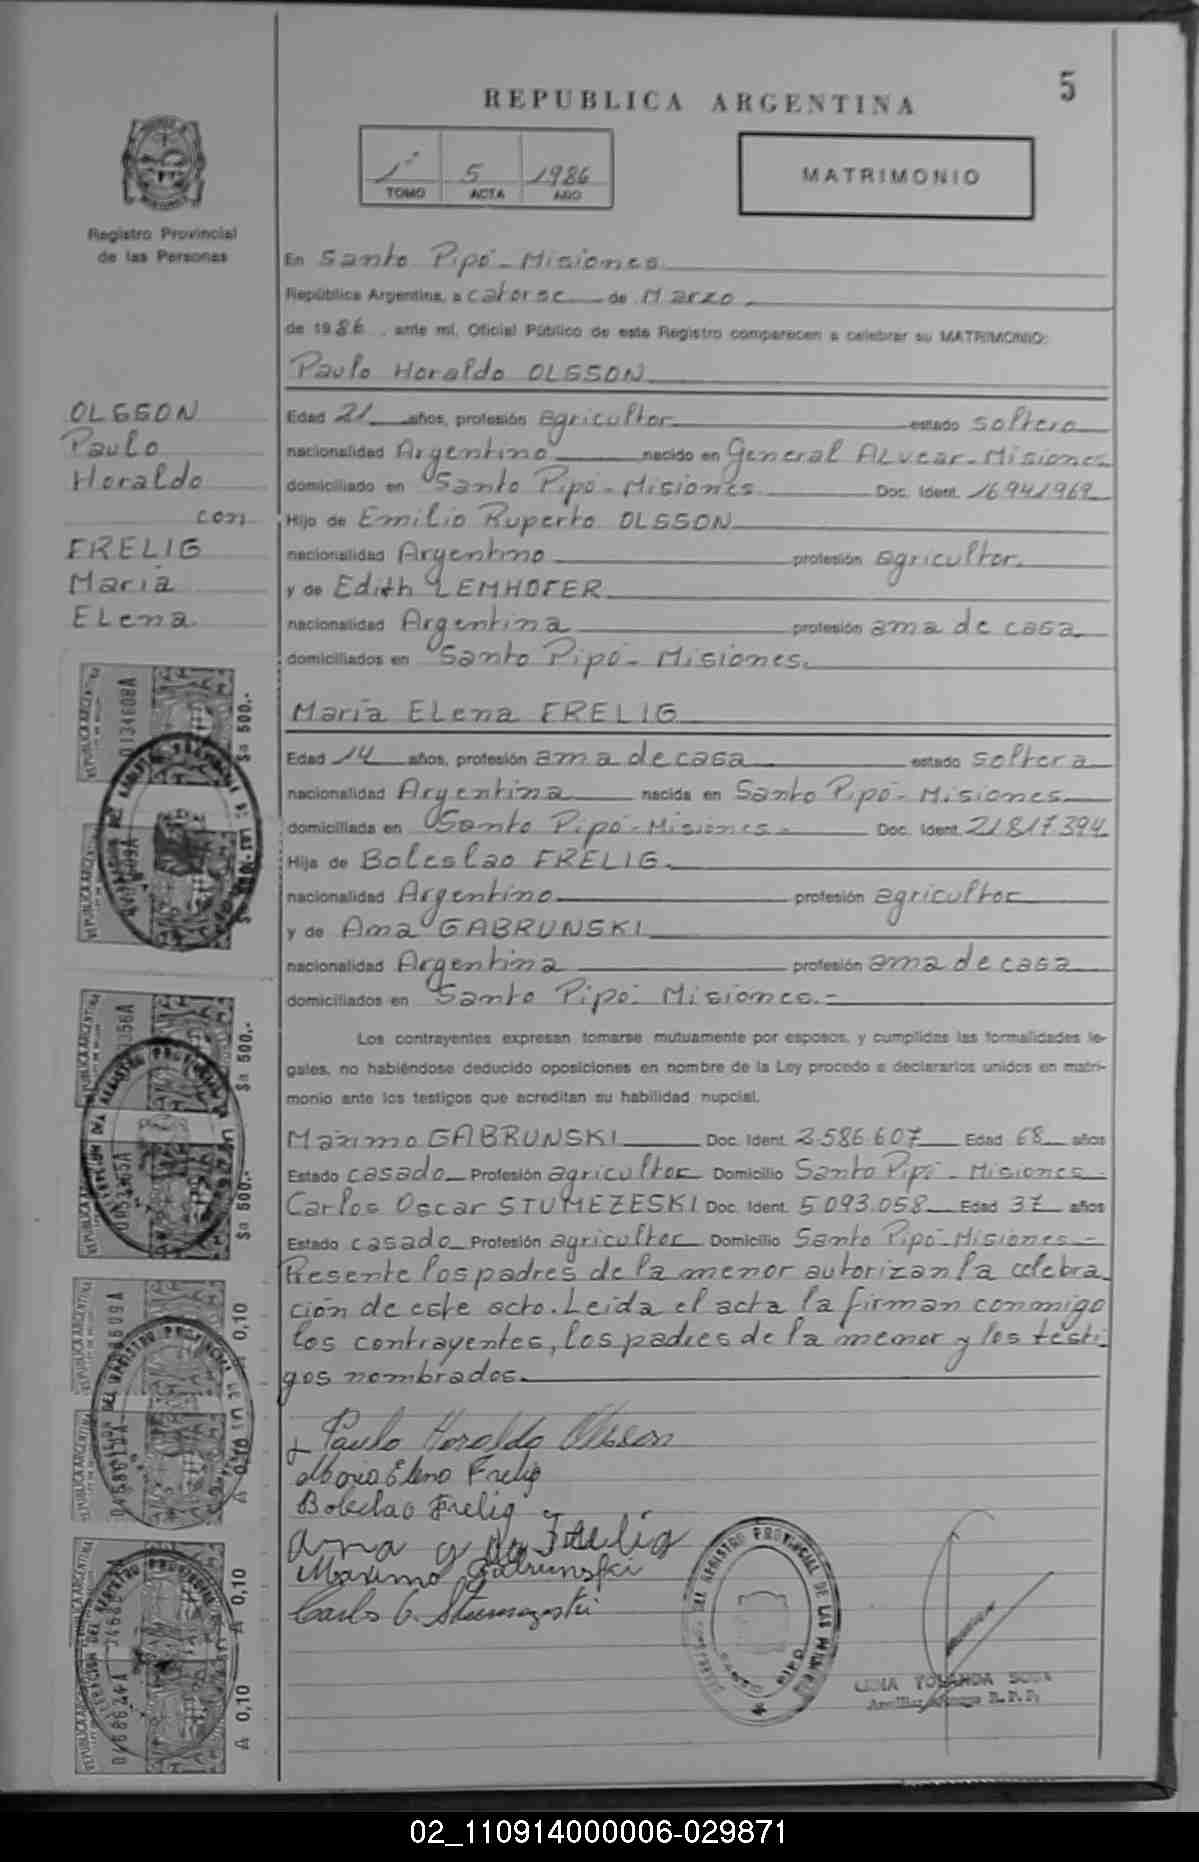 5
REPUBLICA ARGENTINA
1º 5 1986
TOMO ACTA AÑO
MATRIMONIO
Registro Provincial
de las Personas
En Santo Pipó - Misiones
República Argentina, a catorse de Marzo
de 1986, ante mí, Oficial Público de este Registro comparecen a celebrar su MATRIMONIO:
Paulo Horaldo OLSSON
OLSSON
Paulo
Horaldo
con
FRELIG
Maria
Elena
Edad 21 años, profesión agricultor estado soltero
nacionalidad Argentino nacido en General Alvear - Misiones
domiciliado en Santo Pipó - Misiones Doc. Ident. 16941969
Hijo de Emilio Ruperto OLSSON
nacionalidad Argentino profesión agricultor
y de Edith LEMHOFER
nacionalidad Argentina profesión ama de casa
domiciliados en Santo Pipó - Misiones.
Maria Elena FRELIG
Edad 14 años, profesión ama de casa estado soltera
nacionalidad Argentina nacida en Santo Pipó - Misiones
domiciliada en Santo Pipó - Misiones - Doc. Ident. 21817394
Hija de Boleslao FRELIG.
nacionalidad Argentino profesión agricultor
y de Ana GABRUNSKI
nacionalidad Argentina profesión ama de casa
domiciliados en Santo Pipó - Misiones. -
Los contrayentes expresan tomarse mutuamente por esposos, y cumplidas las formalidades le-
gales, no habiéndose deducido oposiciones en nombre de la Ley procedo a declararlos unidos en matri-
monio ante los testigos que acreditan su habilidad nupcial.
Maximo GABRUNSKI Doc. Ident. 2586607 Edad 68 años
Estado casado Profesión agricultor Domicilio Santo Pipó - Misiones
Carlos Oscar STUMEZESKI Doc. Ident. 5093.058 Edad 37 años
Estado casado Profesión agricultor Domicilio Santo Pipó - Misiones -
Presente los padres de la menor autorizan la celebra
ción de este acto. Leida el acta la firman conmigo
los contrayentes, los padres de la menor y los testi
gos nombrados.
Paulo Horaldo Olsson
Maria Elena Frelig
Boleslao Frelig
Ana G de Frelig
Maximo Gabrunski
Carlos O. Stumezeski
YOLANDA
REPUBLICA ARGENTINA
$a 500.-
$a 500.-
$a 500.-
A 0,10
A 0,10
A 0,10
A 0,10
REGISTRO PROVINCIAL DE LAS
02_110914000006-029871